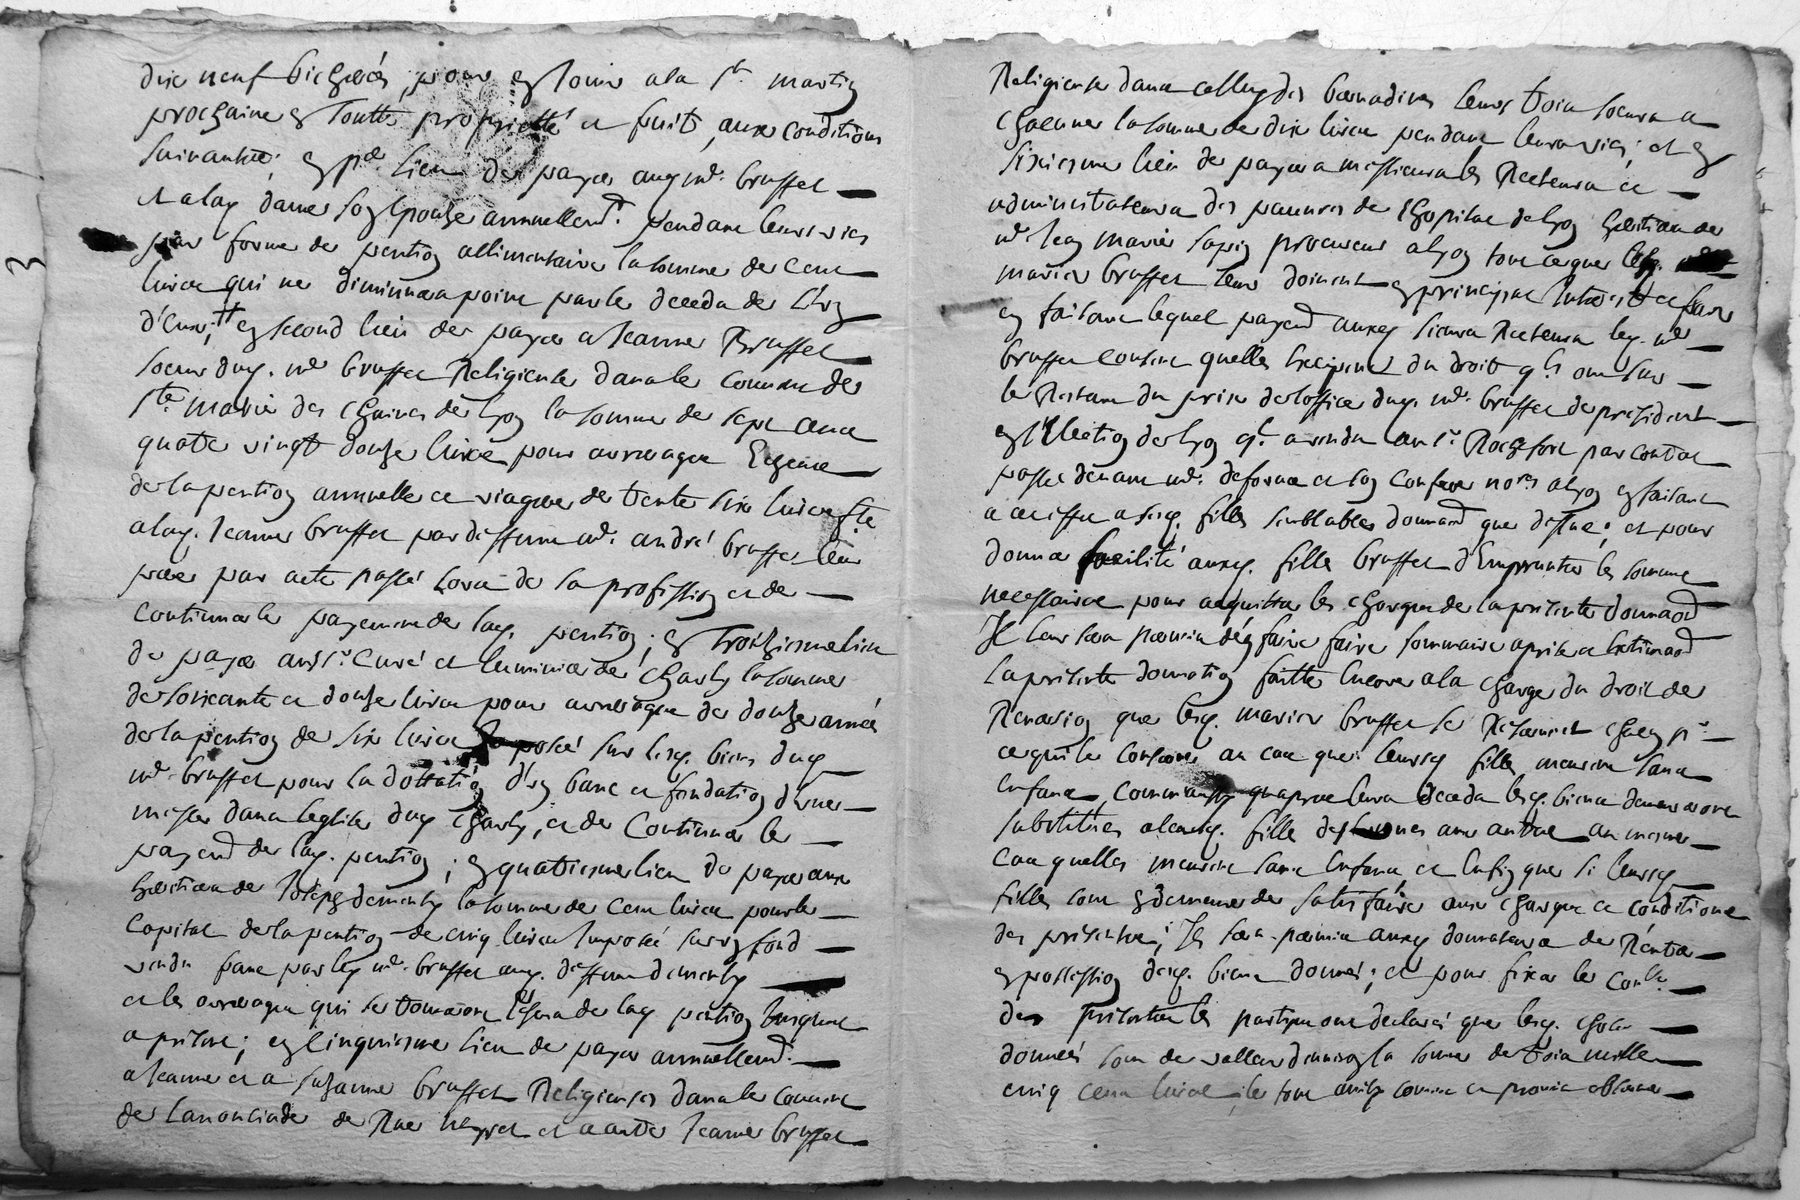 dix neuf bicherés, pour en Jouir a la St martin
prochaine en toutte proprietté et fruit, aux conditions
suivantes; en pr lieu de payer audy mr bruffet
et a lad. dame son Epouse annuellemt pendant leurs vies
par forme de pention allimentaire la somme de cent
livres qui ne diminuera point par le deceda de l'un
d'eux; en second lieu de payer a Jeanne Bruffet
soeur dud. mr bruffet Religieuse dans le couvent de
Ste marie des chaines de lyon la somme de sept cent
quatre vingt douze livres pour arrerages Echeus
de la pention annuelle et viagere de trente six livres fte
a lad. Jeanne bruffet par deffunt mr andré bruffet leur
pere par acte passé Lors de sa profession et de
continuer le payement de lad. pention; en troizieme lieu
de payer au sr Curé et luminier de Charly la somme
de soixante et douze livres pour arrerages de douze année
de la pention de six livres Imposée sur lesd. biens dud.
mr bruffet pour la dottation d'un banc et fondation d'une
messe dans leglise dud Charly, et de Continuer le
payemt de lad. pention; en quatriesme lieu de payer aux
heritiers de dementhy la somme de cent livres pour le
Capital de la pention de cinq livres Imposée sur un fond
vendu par led mr bruffet aud. deffunt dementhy
et les arrerages qui se trouveront Echeus de lad pention Jusques
a present; en cinquiesme lieu de payer annuellemt
a Jeanne et a Suzanne bruffet Religieuses dans le couvent
de Lanonciade de Rue neyret et a autre Jeanne bruffet
Religieuse dans celluy des bernadines leurs trois soeurs a
Chacune la somme de dix livres pendant leurs vies; et en
sixiesme lieu de payer a messieurs les Recteurs et
administrateurs des pauvres de l'hopital de lyon heritiers de
mr Jean marie sapin procureur a lyon tout ce que lesd.
mariés bruffet leur doivent en principal Interest et frais
en faisant lequel payemt auxd. sieurs Recteurs led. mr
bruffet consent quelles treizieme du droit ql ont sur
le Restant du prix de loffice dud. mr bruffet de president
en l'Election de lyon ql a vendu au sr Rochefort par contrat
passé devant mr deforna et son Confrere nores a lyon en faisant
a cet effet a sesd. filles semblables donnaon que dessus; et pour
donner facilité auxd. filles bruffet d'Emprunter les sommes
necessaires pour acquitter les charges de la presente donnaon
Il leur sera permis d'en faire faire sommaire aprise et estimaon
la presente donnation faitte Encore a la charge du droit de
Reversion que lesd. mariés bruffet se Reservent chacun pr
ce qui le concerne au cas que leursd filles meurent sans
Enfans, comm aussy quapres leurs deceda lesd. biens demeureront
substitués a leursd. filles des unes aux autres au mesme
Cas quelles meurent sans Enfans et Enfin que si leursd
filles sont En demeure de satisfaire aux charges et conditions
des presentes; Il sera permis auxd donnateurs de Rentrer
en possession desd. biens donnés; et pour fixer le conlle
des presentes les parties ont declaré que lesd. choses
données sont de valleur d'environ la somme de trois mille
cinq cens livres; le tout ainsy convenu et promis observer